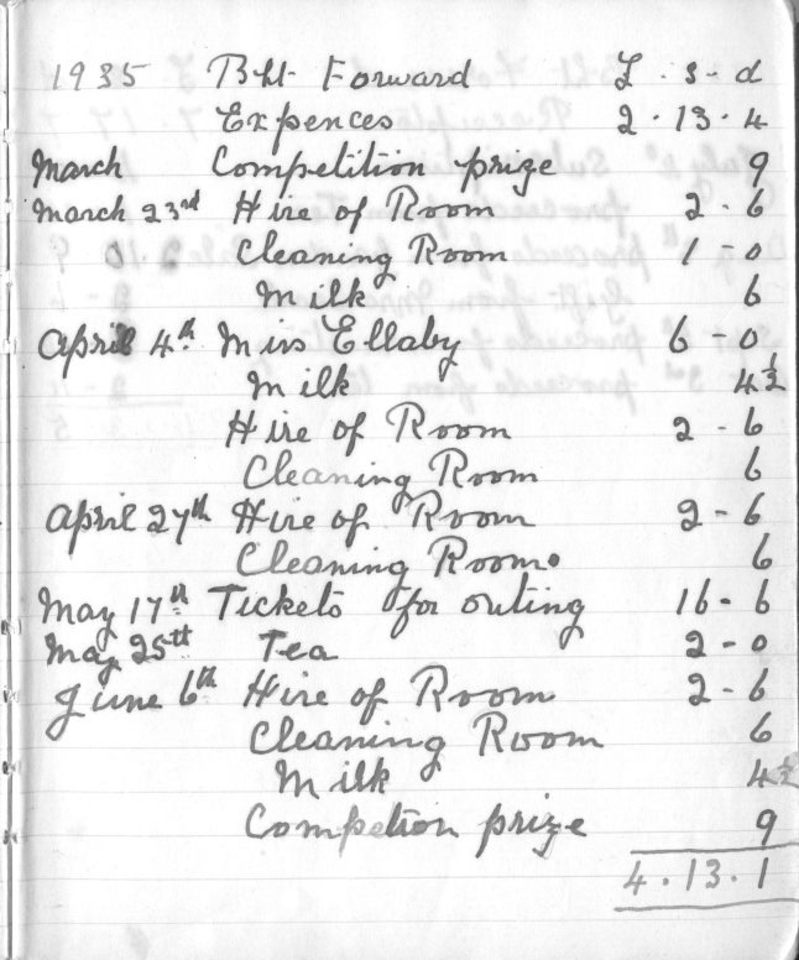 1935 Bht Forward £ . s - d
Expences 2 . 13 . 4
March Competition prize 9
March 23rd Hire of Room 2 - 6
Cleaning Room 1 - 0
Milk 6
April 4th Miss Ellaby 6 - 0
Milk 4½
Hire of Room 2 - 6
Cleaning Room 6
April 27th Hire of Room 2 - 6
Cleaning Room. 6
May 17th Tickets for outing 16 - 6
May 25tt Tea 2 - 0
June 6th Hire of Room 2 - 6
Cleaning Room 6
Milk 4½
Competion prize 9
4 . 13 . 1